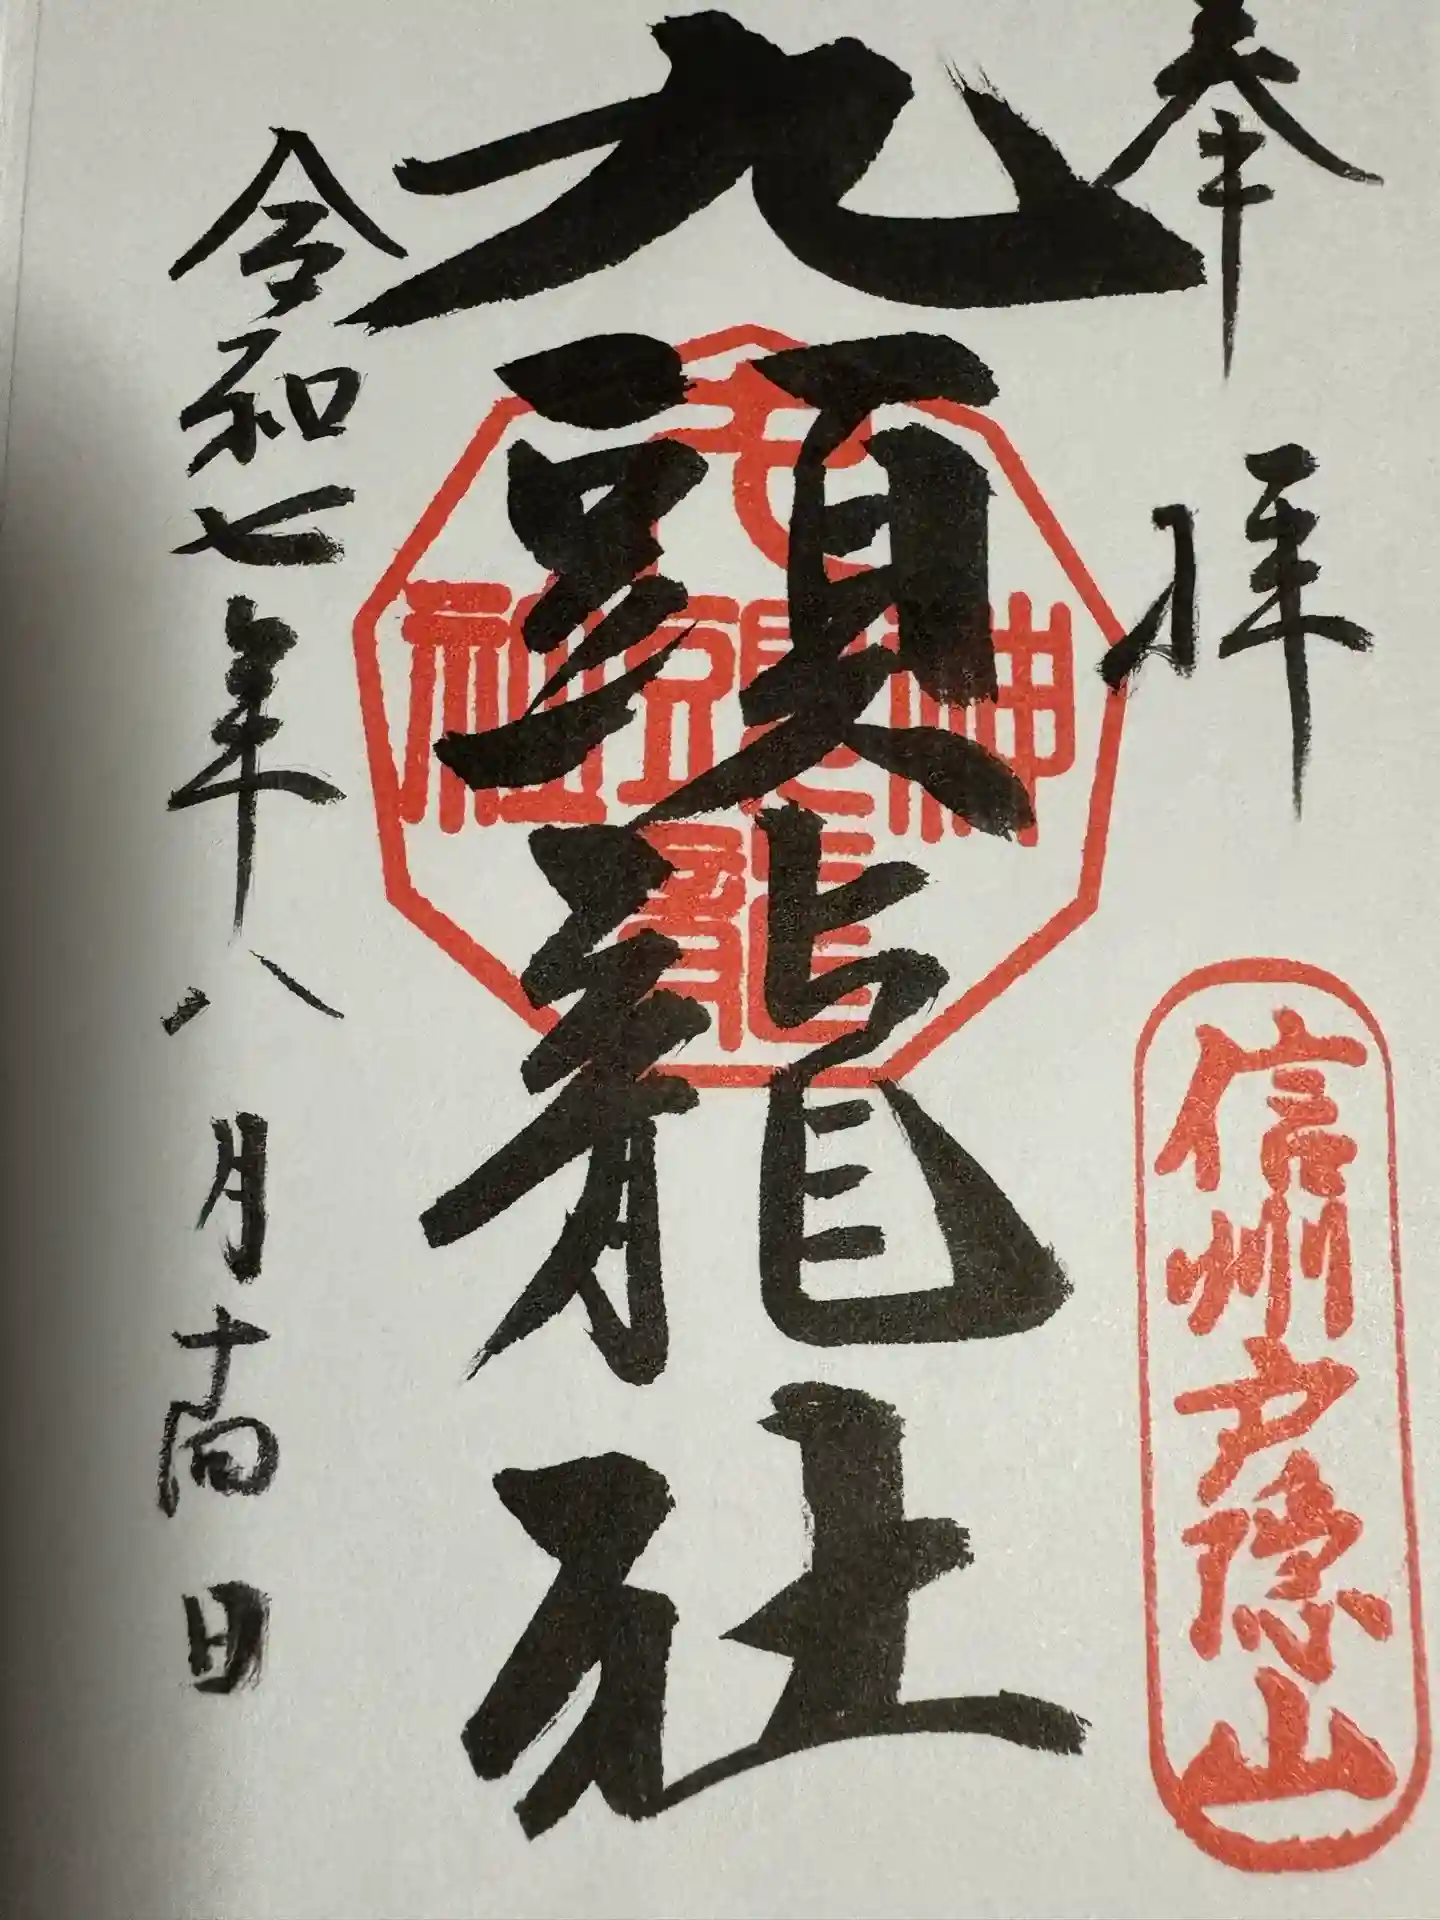 奉拝
信州戸隠山
九頭龍社
九頭龍
神
社
令和七年八月十四日